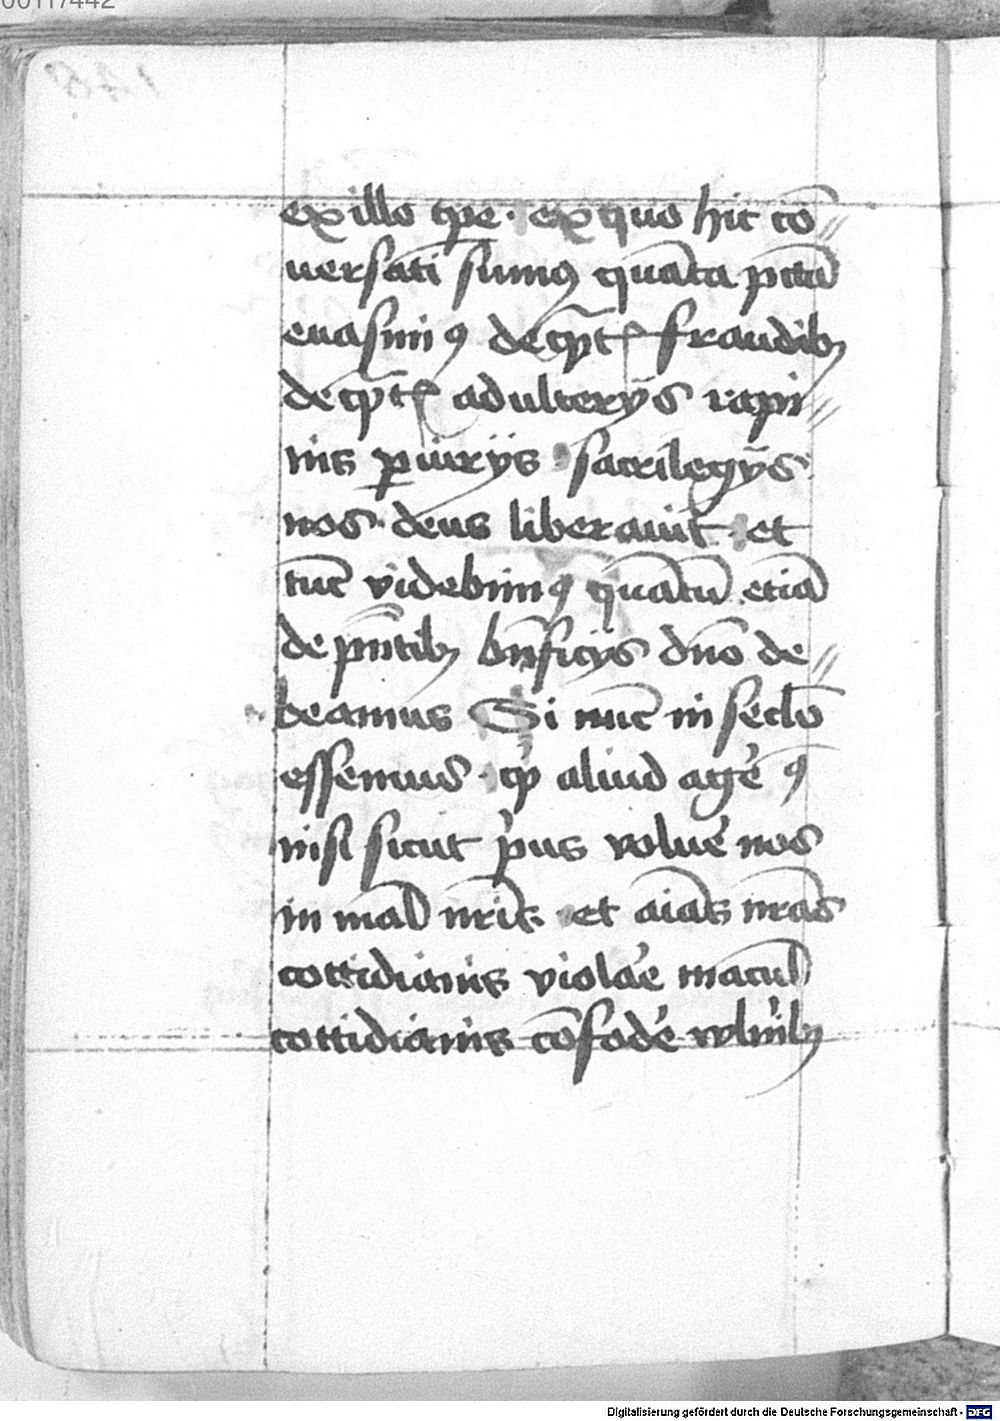 00117442
148
ex illo tꝑe · ex quo hic cō〃
uersati sumꝯ quāta pctā
euasimꝯ de qͥt fraudibꝫ
de qͥt adulterijs rapi〃
nis ꝑiurijs · sacrilegijs
nos · deus liberauit · et
tūc videbimꝯ quātū etiā
de pn̄tibꝫ bn̄ficijs dn̄o de〃
beamus Si nūc in sēclo
essemus · qͥ aliud agēꝰ
nisi sicut pͥus voluē nos
in mal nr̄is · et aīas nr̄as
cottidianis violaē macul
cottidianis cōfodē vlnīibꝫ
Digitalisierung gefördert durch die Deutsche Forschungsgemeinschaft - DFG